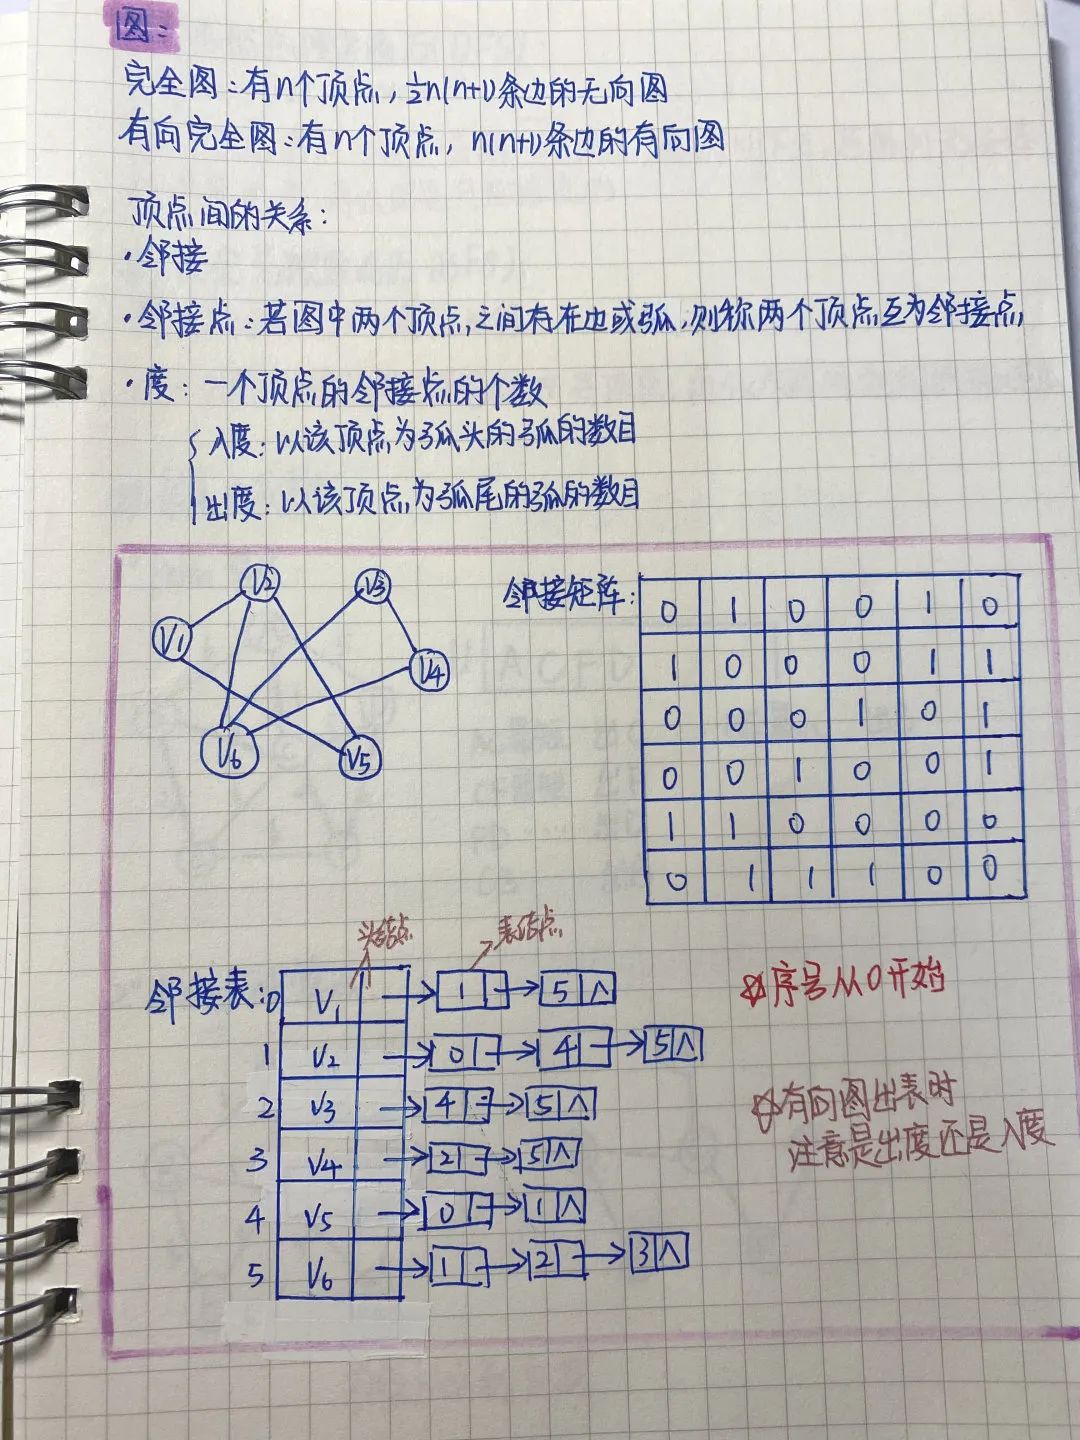 图:
完全图:有n个顶点,½n(n+1)条边的无向图
有向完全图:有n个顶点, n(n+1)条边的有向图
顶点间的关系:
·邻接
·邻接点:若图中两个顶点之间存在边或弧,则称两个顶点互为邻接点,
·度:一个顶点的邻接点的个数
入度:以该顶点为弧头的弧的数目
出度:以该顶点为弧尾的弧的数目
V2 V3
V1
V4
V6 V5
邻接矩阵:
0 1 0 0 1 0
1 0 0 0 1 1
0 0 0 1 0 1
0 0 1 0 0 1
1 1 0 0 0 0
0 1 1 1 0 0
头结点 表结点
邻接表:0 V1 → 1 → 5 ∧
1 V2 → 0 → 4 → 5 ∧
2 V3 → 4 → 5 ∧
3 V4 → 2 → 5 ∧
4 V5 → 0 → 1 ∧
5 V6 → 1 → 2 → 3 ∧
☆序号从0开始
☆有向图出表时
注意是出度还是入度